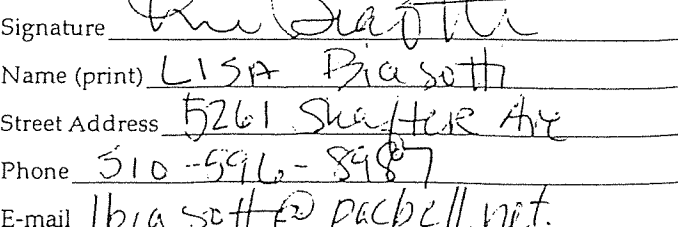 Signature
Name (print) LISA Biasotti
Street Address 5261 Shafter Ave
Phone 510-596-8987
E-mail lbiasotti@pacbell.net.